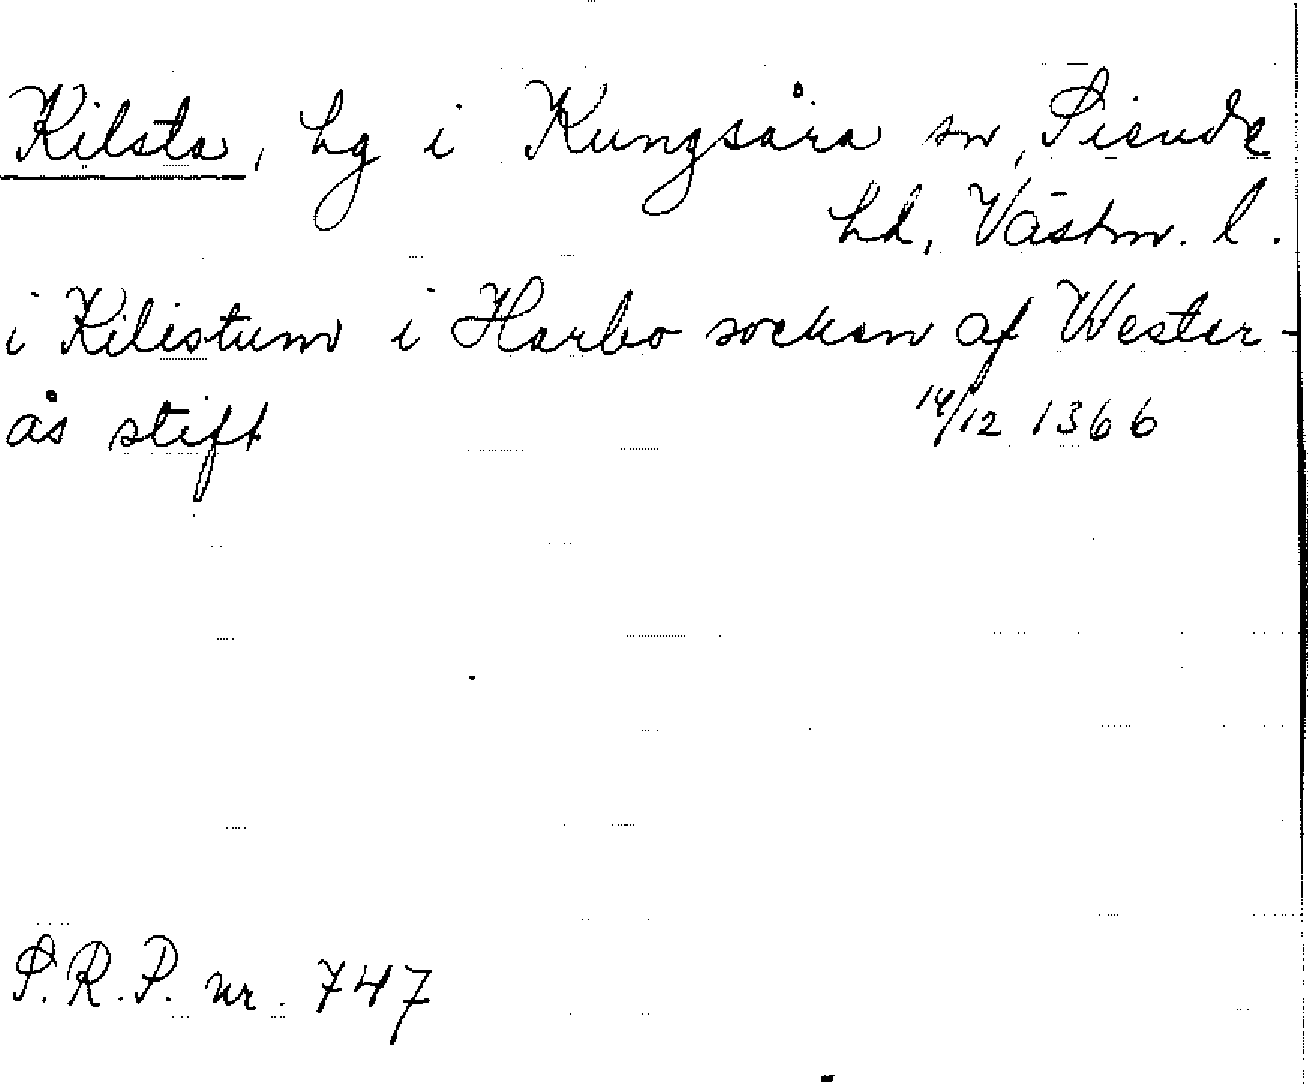 Kilsta, hg i Kungsåra sn, Siende
hd, Västm. l.
i Kilistum i Harbo socken af Wester-
ås stift 14/12 1366
S.R.P. nr. 747